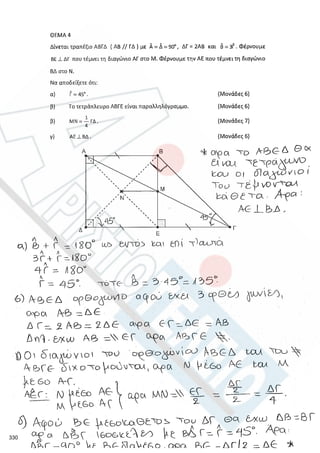 ΘΕΜΑ 4
Δίνεται τραπέζιο ΑΒΓΔ ( ΑΒ // ΓΔ ) με Â = Δ̂ = 90°, ΔΓ = 2ΑΒ και B̂ = 3Γ̂. Φέρνουμε
ΒΕ ⊥ ΔΓ που τέμνει τη διαγώνιο ΑΓ στο Μ. Φέρνουμε την ΑΕ που τέμνει τη διαγώνιο
ΒΔ στο Ν.
Να αποδείξετε ότι:
α) Γ̂ = 45°. (Μονάδες 6)
β) Το τετράπλευρο ΑΒΓΕ είναι παραλληλόγραμμο. (Μονάδες 6)
γ) ΜΝ = 1/4 ΓΔ. (Μονάδες 7)
γ) ΑΕ ⊥ ΒΔ. (Μονάδες 6)
* αρα το ΑΒΕΔ θα
είναι τετράγωνο
και οι διαγώνιοι
του τέμνονται
κάθετα. Άρα:
ΑΕ ⊥ ΒΔ.
Α Β
Ν Μ
45° 45°
Δ Ε Γ
α) B̂ + Γ̂ = 180° ως εντος και επί τ'αυτά
3Γ̂ + Γ̂ = 180°
4Γ̂ = 180°
Γ̂ = 45°. τοτε B̂ = 3·45° = 135°
β) ΑΒΕΔ ορθογώνιο αφού έχει 3 ορθές γωνίες,
αρα ΑΒ = ΔΕ
ΔΓ = 2ΑΒ = 2ΔΕ αρα ΕΓ = ΔΕ = ΑΒ
Δηλ. έχω ΑΒ =// ΕΓ αρα ΑΒΓΕ #.
γ) Οι διαγώνιοι του ορθογωνίου ΑΒΕΔ και του #
ΑΒΓΕ διχοτομούνται, αρα Ν μέσο ΑΕ και Μ
μέσο ΑΓ.
ΑΕΓ: Ν μέσο ΑΕ
Μ μέσο ΑΓ } αρα ΜΝ =// ΕΓ/2 = ΔΓ/2/2 = ΔΓ/4.
δ) Αφού ΒΕ μεσοκάθετος του ΔΓ θα έχω ΔΒ=ΒΓ
αρα ΔΒΓ ισοσκελές με Γ̂ = 45°. Αρα:
330